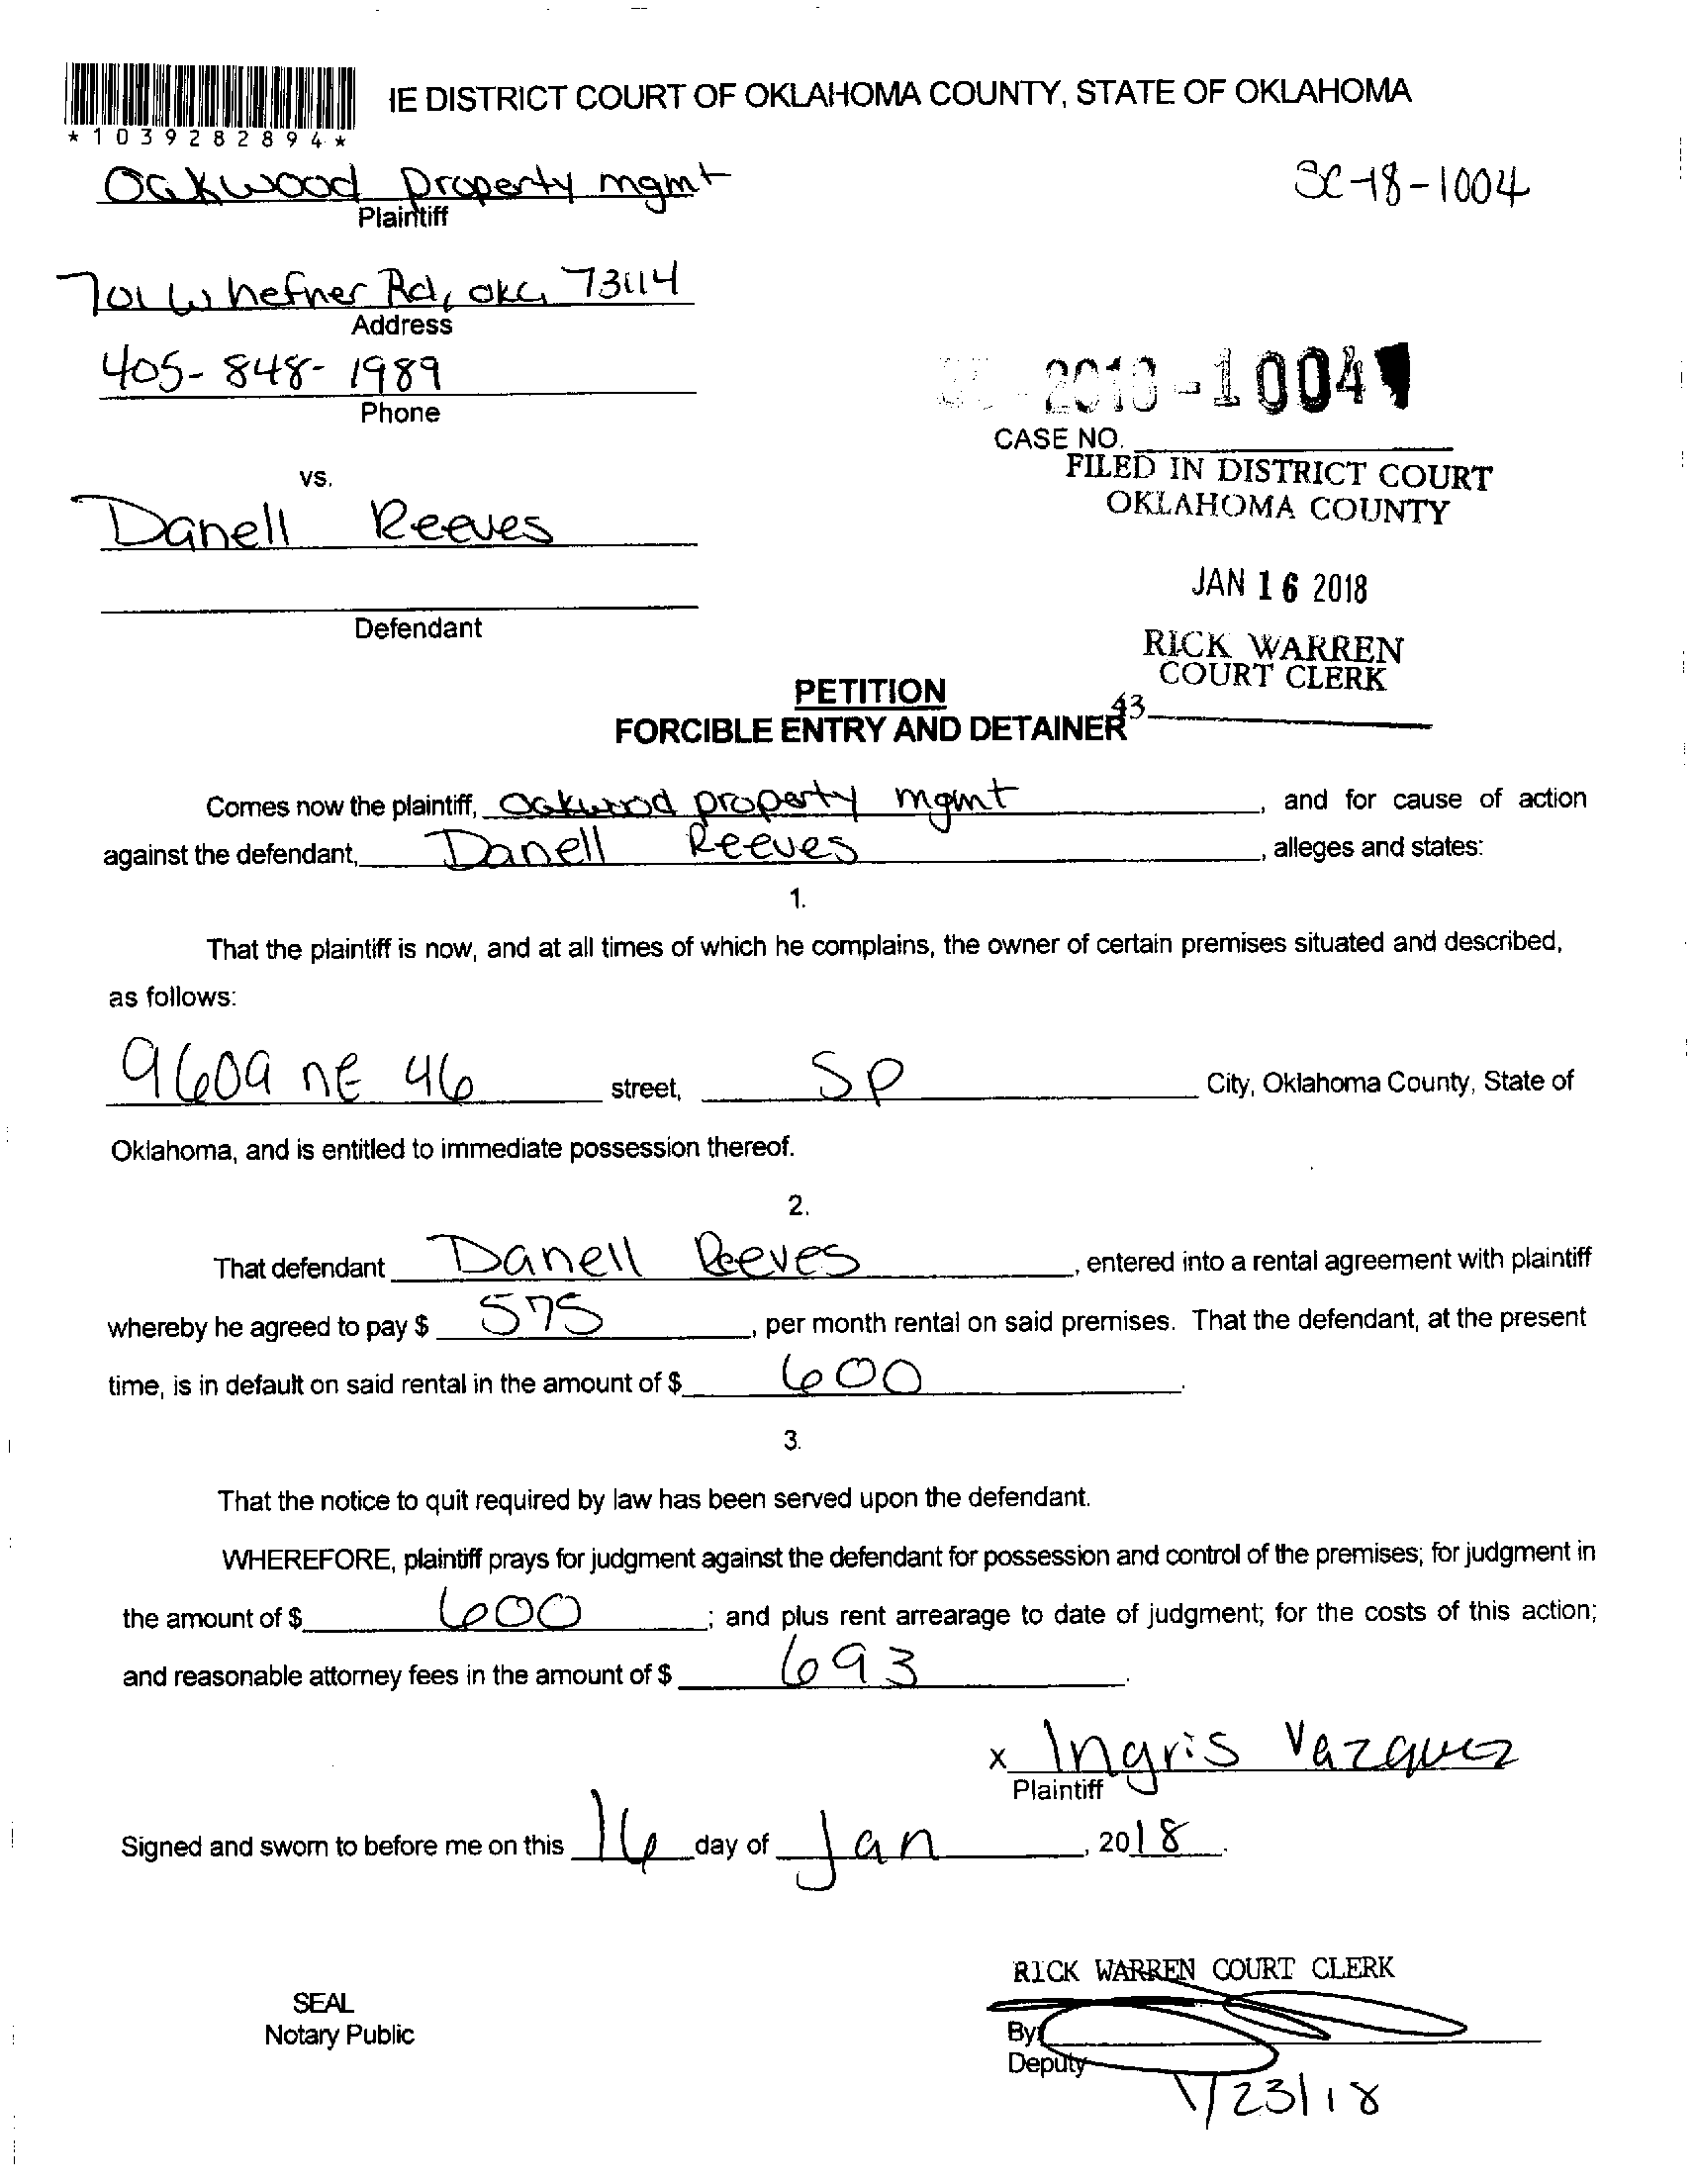 IE DISTRICT COURT OF OKLAHOMA COUNTY, STATE OF OKLAHOMA
*1039282894*
Oakwood property mgmt
Plaintiff
SC-18-1004
701 W hefner Rd, okc, 73114
Address
405-848-1989
Phone
2018-1004
CASE NO.
FILED IN DISTRICT COURT
OKLAHOMA COUNTY
vs.
Danell Reeves
JAN 16 2018
Defendant
RICK WARREN
COURT CLERK
43
PETITION
FORCIBLE ENTRY AND DETAINER
Comes now the plaintiff, Oakwood property mgmt, and for cause of action
against the defendant, Danell Reeves, alleges and states:
1.
That the plaintiff is now, and at all times of which he complains, the owner of certain premises situated and described,
as follows:
9609 NE 46 street, SP City, Oklahoma County, State of
Oklahoma, and is entitled to immediate possession thereof.
2.
That defendant Danell Reeves, entered into a rental agreement with plaintiff
whereby he agreed to pay $ 575, per month rental on said premises. That the defendant, at the present
time, is in default on said rental in the amount of $ 600.
3.
That the notice to quit required by law has been served upon the defendant.
WHEREFORE, plaintiff prays for judgment against the defendant for possession and control of the premises; for judgment in
the amount of $ 600; and plus rent arrearage to date of judgment; for the costs of this action;
and reasonable attorney fees in the amount of $ 693.
x Ingris Vazquez
Plaintiff
Signed and sworn to before me on this 16 day of Jan, 2018.
RICK WARREN COURT CLERK
SEAL
Notary Public
By:
Deputy
1/23/18